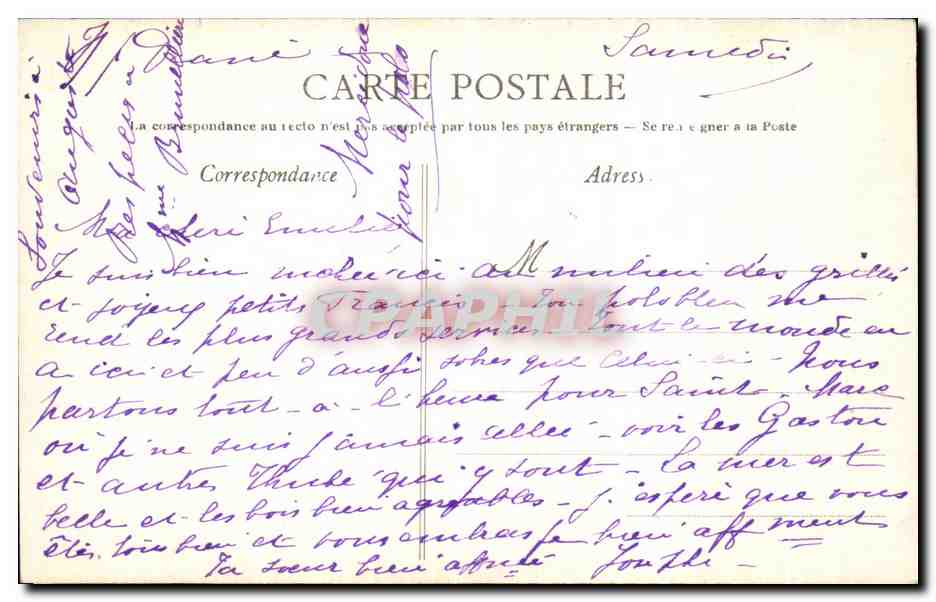 Samedi
CARTE POSTALE
La correspondance au recto n'est pas acceptée par tous les pays étrangers — Se renseigner à la Poste
Correspondance
Adresse
Souvenirs à
Auguste
Mes
à
Mme
Merci donc
pour le polo
Ma chère Emilie
Je suis bien ici au milieu des grillés
et joyeux petits Français - Ton polo bleu me
rend les plus grands services - tout le monde en
a ici et peu d'aussi jolies que celui-ci - Nous
partons tout - à - l'heure pour Sainte - Marc
où je ne suis jamais allée - voir les Gaston
et autres qui y sont - La mer est
belle et les bois bien agréables - J'espère que vous
êtes tous bien et vous embrasse bien affment
Ta sœur bien affnée
M
CPAPHIL